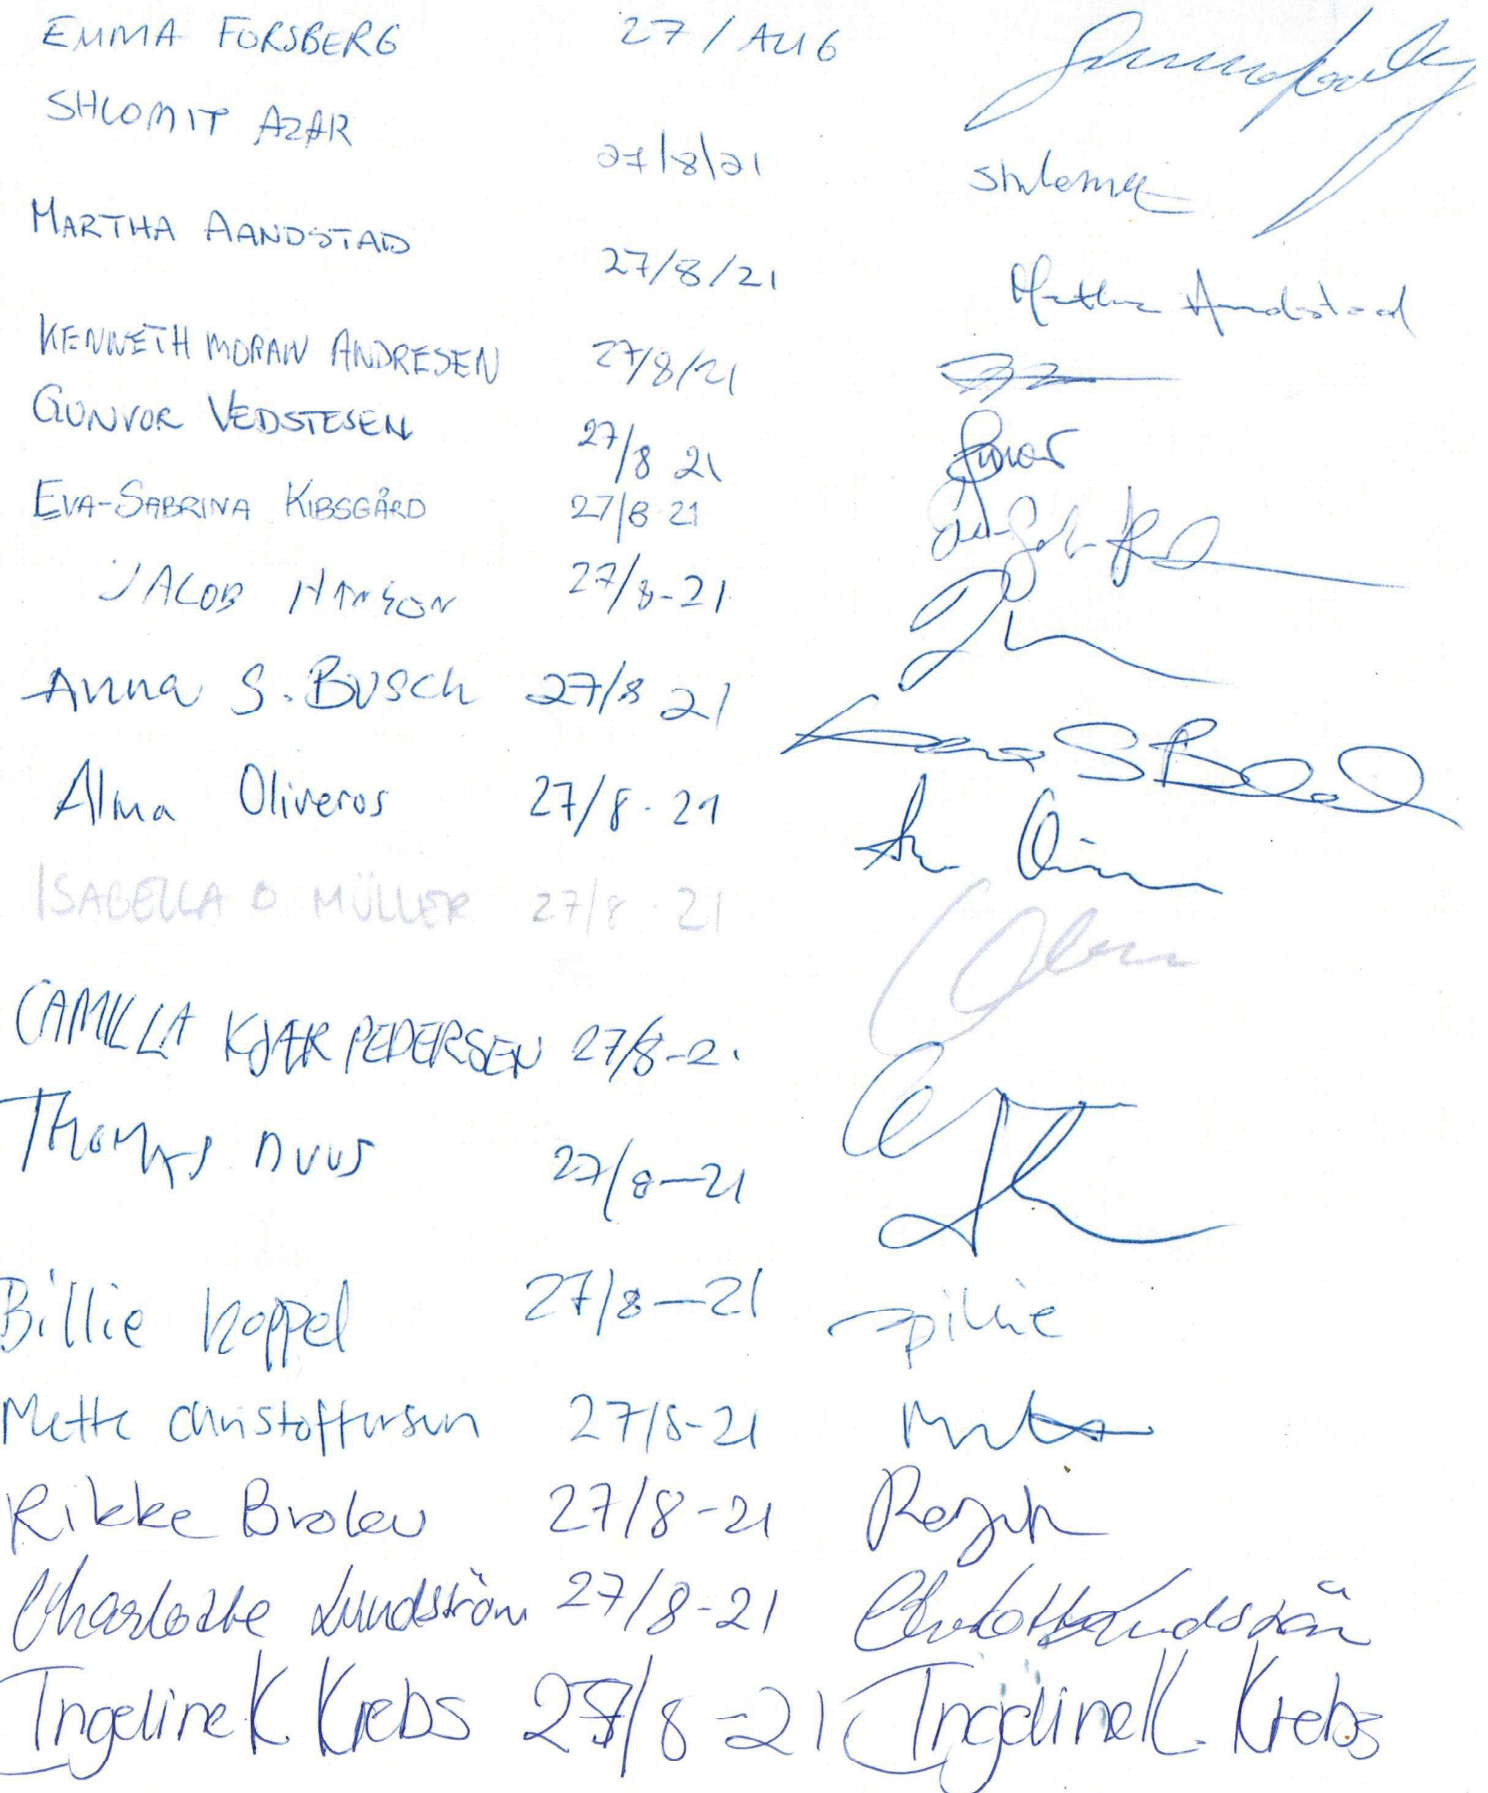 EMMA FORSBERG 27 / AUG
SHLOMIT AZAR 27/8/21 Shlomit
MARTHA AANDSTAD 27/8/21 Martha Aandstad
KENNETH MORAN ANDRESEN 27/8/21
GUNVOR VEDSTESEN 27/8 21
EVA-SABRINA KIBSGÅRD 27/8 21
JACOB 27/8-21
Anna S. Busch 27/8 21 Anna S Busch
Alma Oliveros 27/8-21
ISABELLA D MÜLLER 27/8-21
CAMILLA KJÆR PEDERSEN 27/8-2
THOMAS DUUS 27/8-21
Billie Koppel 27/8-21
Mette Christoffersen 27/8-21
Rikke 27/8-21
Charlotte Lundström 27/8-21 Charlotte Lundström
Ingeline K. Krebs 27/8-21 Ingeline K. Krebs